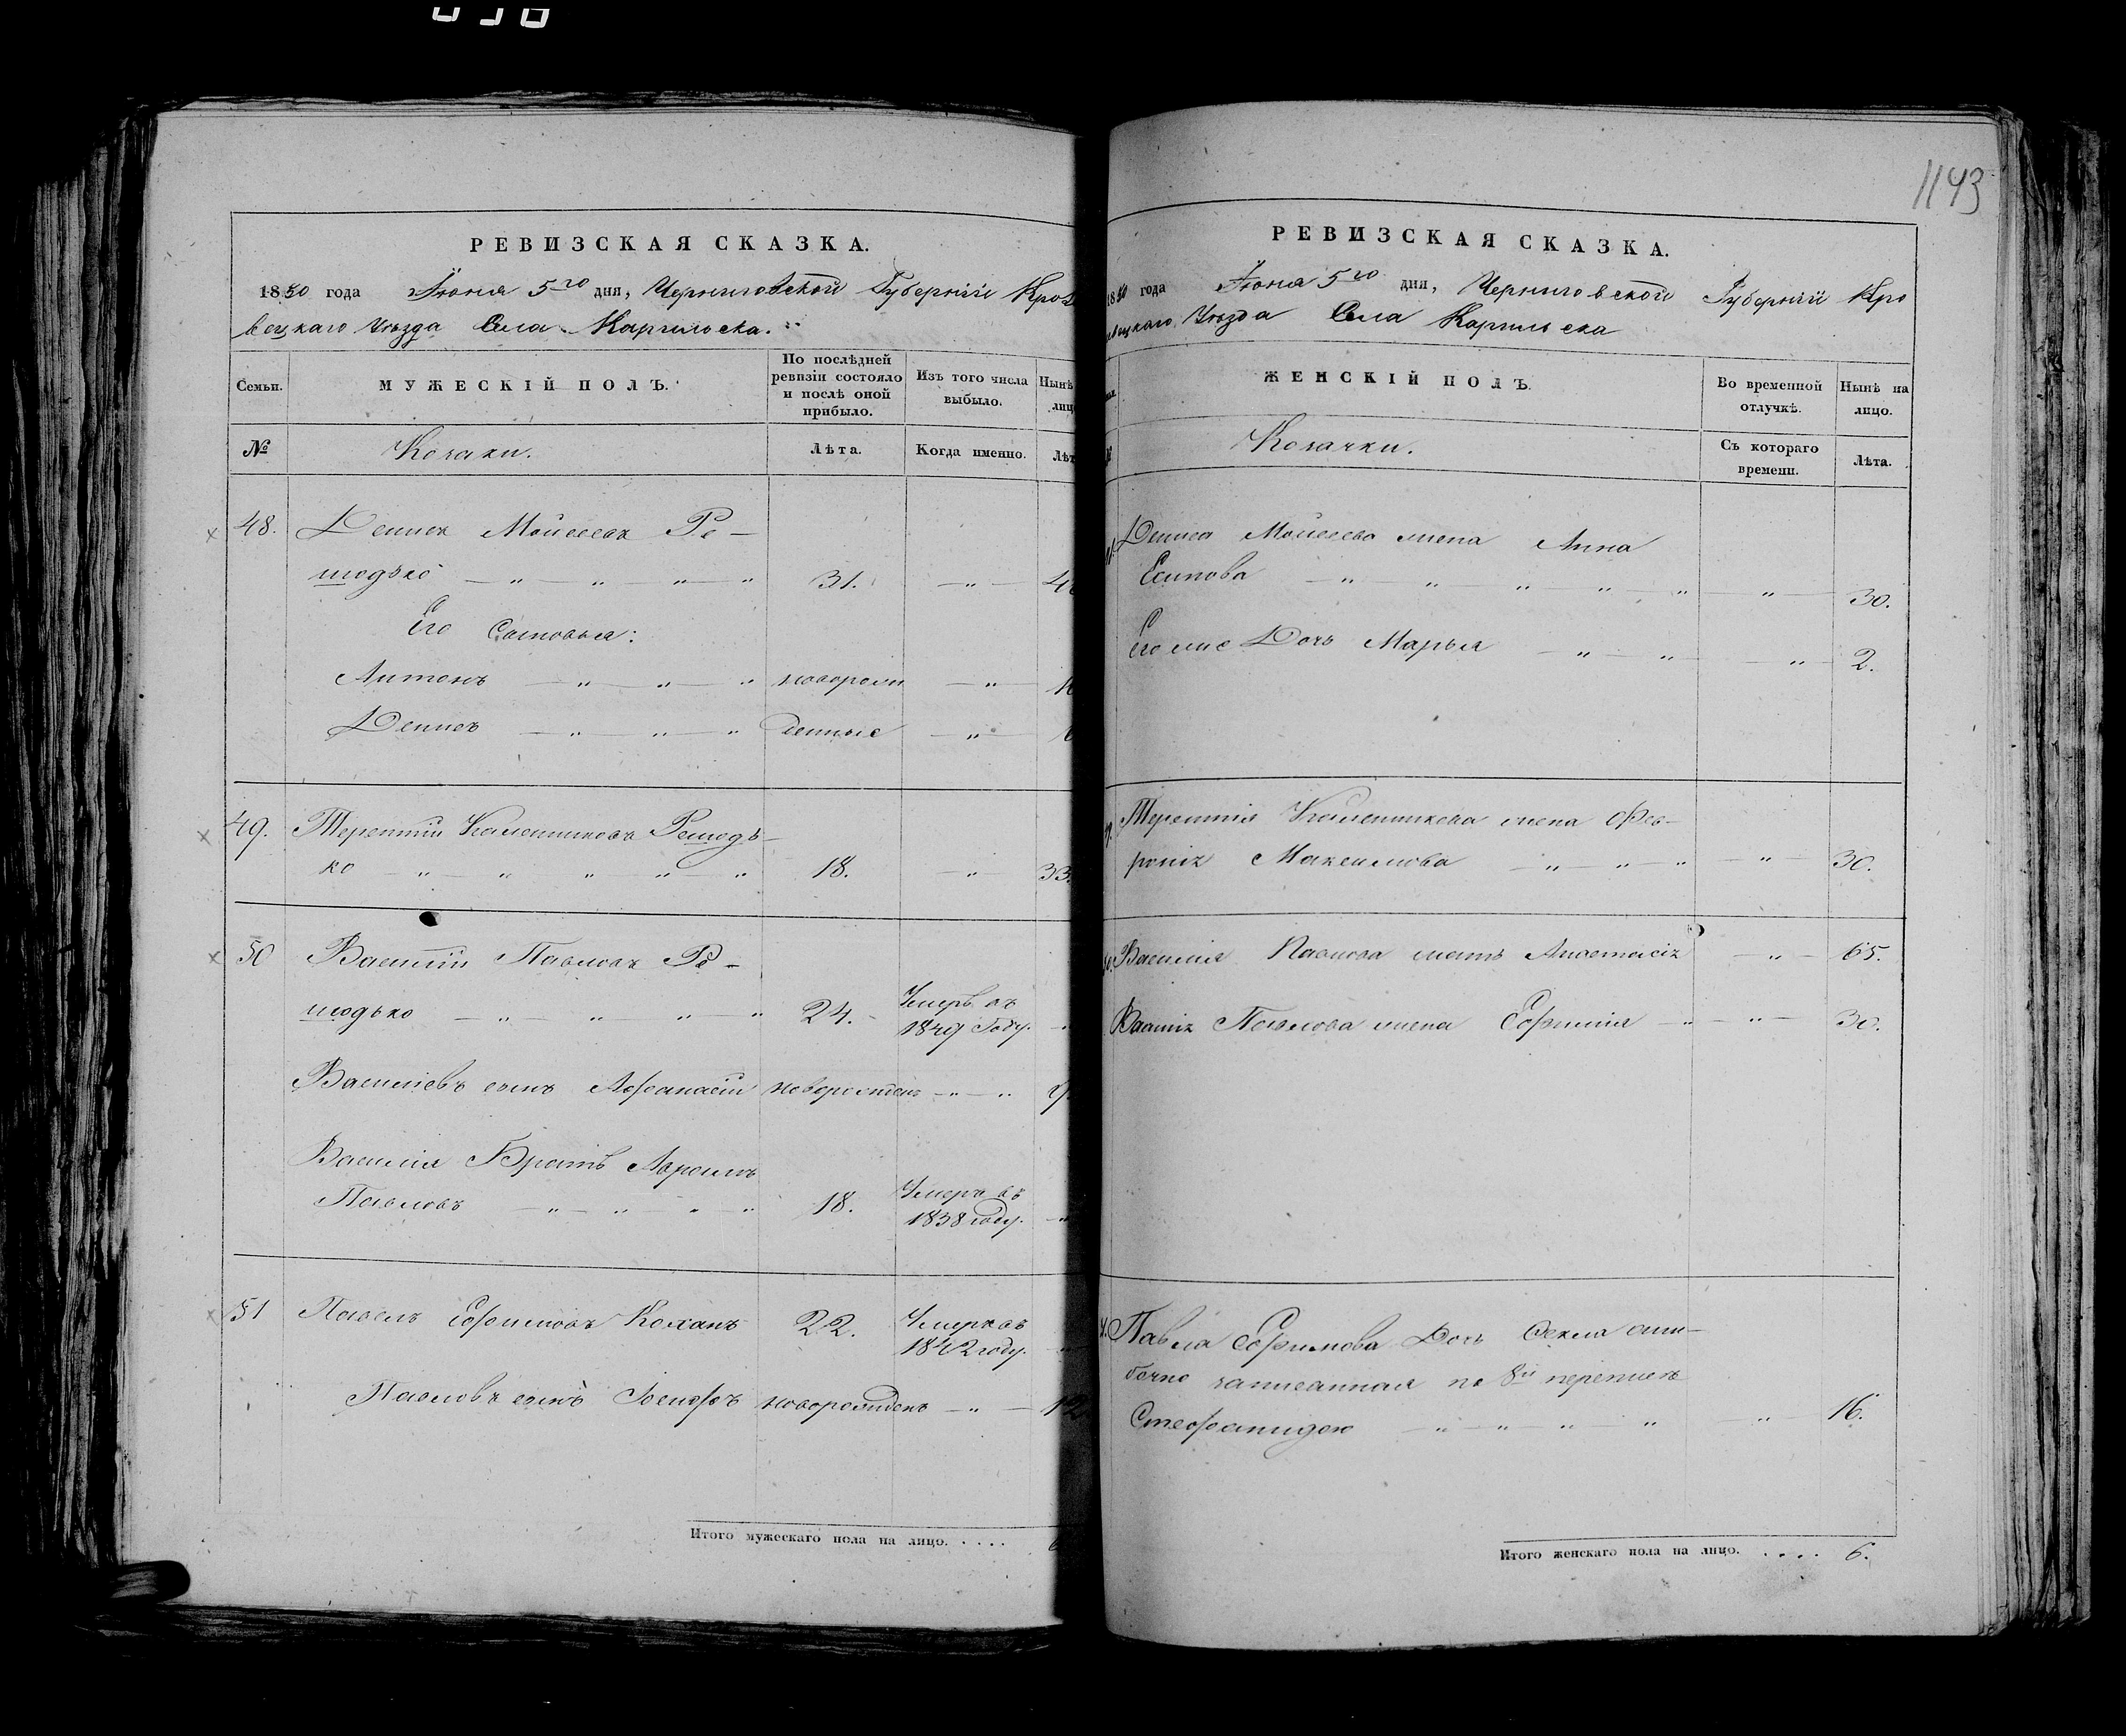 1143
РЕВИЗСКАЯ СКАЗКА.
1850 года Іюня 5го дня, Черниговской Губерніи Кроле
вецкаго Уѣзда Села Каргильска.
Семьи.
МУЖЕСКІЙ ПОЛЪ.
По послѣдней
ревизіи состояло
и послѣ оной
прибыло.
Изъ того числа
выбыло.
Нынѣ
лицо
№
Козаки.
Лѣта.
Когда именно.
Лѣт
48. Денисъ Мойсеевъ Ре-
модько 31.
Его Сыновья:
Антонъ новорож
Денисъ денные
49. Терентій Калениковъ Ремодь-
ко 18. 33.
50 Василій Павловъ Ре-
модько 24. Умеръ въ
1849 Году.
Василіевъ сынъ Афанасій новорожденъ 9
Василія Братъ Аврамъ
Павловъ 18. Умеръ въ
1838 году.
51 Павелъ Ефимовъ Коханъ 22. Умеръ въ
1842 году.
Павловъ сынъ Іосифъ новорожденъ 12
Итого мужескаго пола на лицо. . . . . 6
РЕВИЗСКАЯ СКАЗКА.
1850 года Іюня 5го дня, Черниговской Губерніи Кро
левецкаго Уѣзда Села Каргильска
ЖЕНСКІЙ ПОЛЪ.
Во временной
отлучкѣ.
Нынѣ на
лицо.
Козачки.
Съ котораго
времени.
Лѣта.
Дениса Мойсеева жена Анна
Есипова 30.
Его же Дочь Марья 2.
Терентія Каленикова жена Фев-
ронія Максимова 30.
Василія Павлова мать Анастасія 65.
Василія Павлова жена Ефимія 30.
Павла Ефимова Дочь Фекла оши-
бочно записанная по 8й переписи
Стефанидою 16.
Итого женскаго пола на лицо. . . . . 6.